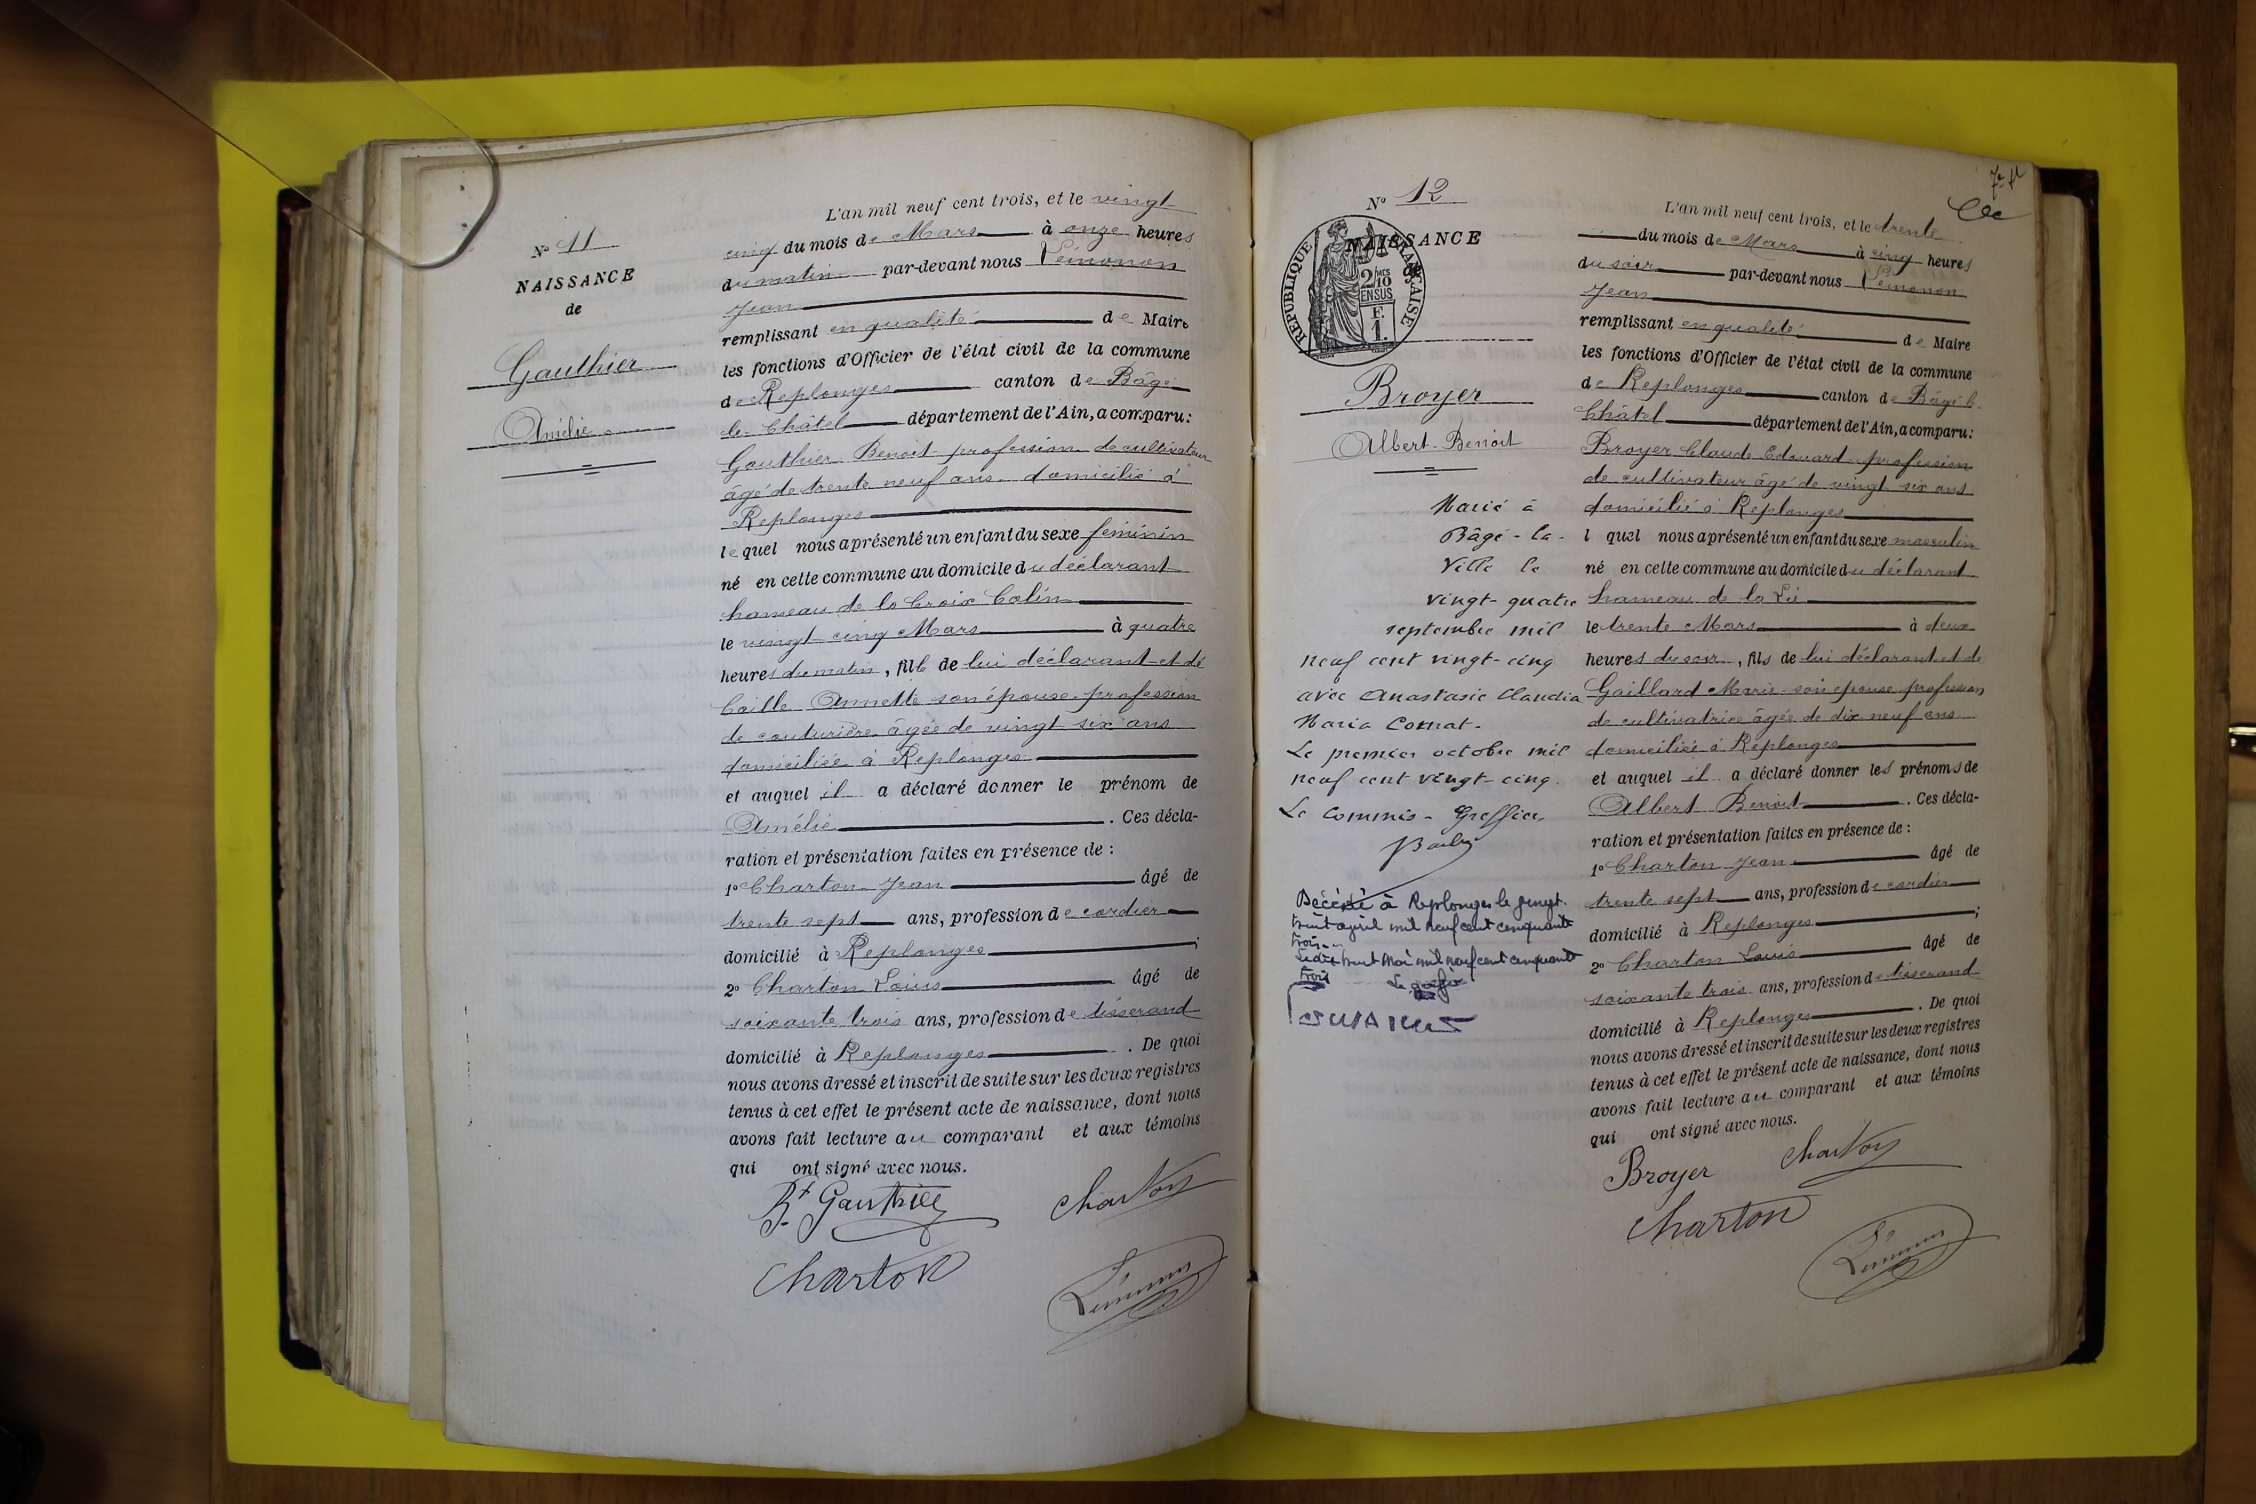 L'an mil neuf cent trois, et le vingt
N° 11
cinq du mois de Mars à onze heures
NAISSANCE
du matin par-devant nous Pémonon
de
Jean
remplissant en qualité de Maire
Gauthier
les fonctions d'Officier de l'état civil de la commune
de Replonges canton de Bâgé
Amélie
le-Châtel département de l'Ain, a comparu:
Gauthier Benoit profession de cultivateur
âgé de trente neuf ans domicilié à
Replonges
lequel nous a présenté un enfant du sexe féminin
né en cette commune au domicile du déclarant
hameau de la Croix Colin
le vingt cinq Mars à quatre
heures du matin, fille de lui déclarant et de
Caille Annette son épouse profession
de couturière âgée de vingt six ans
domiciliée à Replonges
et auquel il a déclaré donner le prénom de
Amélie. Ces décla-
ration et présentation faites en présence de :
1° Charton Jean âgé de
trente sept ans, profession de cordier
domicilié à Replonges;
2° Charton Louis âgé de
soixante trois ans, profession de tisserand
domicilié à Replonges. De quoi
nous avons dressé et inscrit de suite sur les deux registres
tenus à cet effet le présent acte de naissance, dont nous
avons fait lecture au comparant et aux témoins
qui ont signé avec nous.
Bt Gauthier Charton
Charton
7e ft
N° 12
L'an mil neuf cent trois, et le trente
NAISSANCE
de
RÉPUBLIQUE FRANÇAISE
2/10 EN SUS
F. 1.
du mois de Mars à cinq heures
du soir par-devant nous Pémonon
Jean
remplissant en qualité de Maire
les fonctions d'Officier de l'état civil de la commune
Broyer
de Replonges canton de Bâgé le
Châtel département de l'Ain, a comparu:
Albert Benoit
Broyer Claude Edouard profession
de cultivateur âgé de vingt six ans
domicilié à Replonges
l quel nous a présenté un enfant du sexe masculin
né en cette commune au domicile du déclarant
hameau de la
le trente Mars à deux
heures du soir, fils de lui déclarant et de
Gaillard Marie son épouse profession
de cultivatrice âgée de dix neuf ans
domiciliée à Replonges
et auquel il a déclaré donner les prénoms de
Albert Benoit. Ces décla-
ration et présentation faites en présence de :
1° Charton Jean âgé de
trente sept ans, profession de cordier
domicilié à Replonges;
2° Charton Louis âgé de
soixante trois ans, profession de tisserand
domicilié à Replonges. De quoi
nous avons dressé et inscrit de suite sur les deux registres
tenus à cet effet le présent acte de naissance, dont nous
avons fait lecture au comparant et aux témoins
qui ont signé avec nous.
Broyer Charton
Charton
Marié à
Bâgé-la-
Ville le
vingt-quatre
septembre mil
neuf cent vingt-cinq
avec Anastasie Claudia
Maria Cornat.
Le premier octobre mil
neuf cent vingt-cinq.
Le Commis-Greffier
Décédé à Replonges le vingt
huit avril mil neuf cent cinquante
trois
Le dix huit Mai mil neuf cent cinquante
trois Le greffier